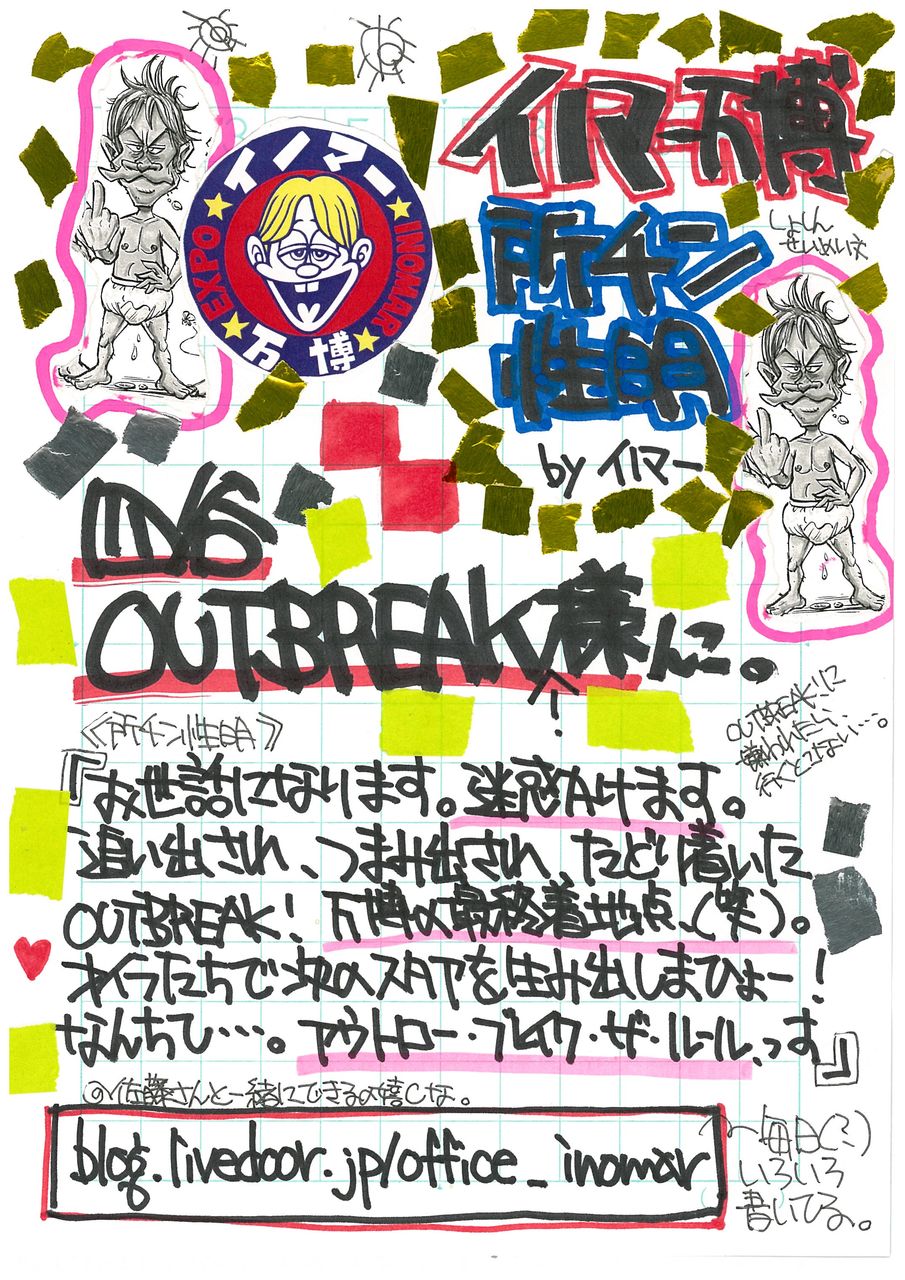 イノマー万博
所チン
性明
しょしん
せいめいは
by イノマー
イノマー
EXPO
INOMAR
万博
OUTBREAK様んこ。
OUTBREAK!に
嫌われたい
行くとこない…。
《所チン性明》
『お世話になります。迷惑かけます。
追い出され、つまみ出され、たどり着いた
OUTBREAK! 万博の最終着地点、(笑)。
オイラたちで次のスタアを生み出しまひょー!
なんちて…。アウトロー・ブレイク・ザ・ルール、っす』
@佐藤さんと一緒にできるの嬉しな。
blog.livedoor.jp/office_inomar
毎日(?)
いろいろ
書いてるよ。